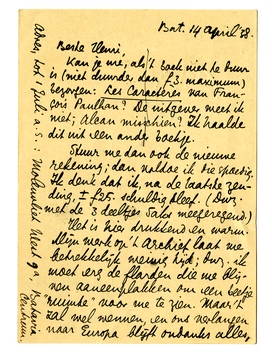 Bat. 14 April '38.
Beste Henri,
Kan je me, als 't boek niet te duur
is (niet duurder dan f 3. maximum)
bezorgen: Les Caractères van Fran-
çois Paulhan? De uitgever weet ik
niet; Alcan misschien? Ik haalde
dit uit een ander boekje.
Stuur me dan ook de nieuwe
rekening; dan voldoe ik die spoedig.
Ik denk dat ik, na de laatste zen-
ding, ± f 25. schuldig bleef. (Dwz.
met de 3 deeltjes Saks meegerekend.)
Het is hier drukkend en warm.
Mijn werk op 't Archief laat me
betrekkelijk weinig tijd; dwz. ik
moet erg de flarden die me blij-
ven aaneenplakken om een beetje
"ruimte" voor me te zien. Maar 't
zal wel wennen, en ons verlangen
naar Europa blijft ondanks alles,
Adres, tot 1 Juli a.s.: Molenvliet West 9a, Batavia
Centrum.